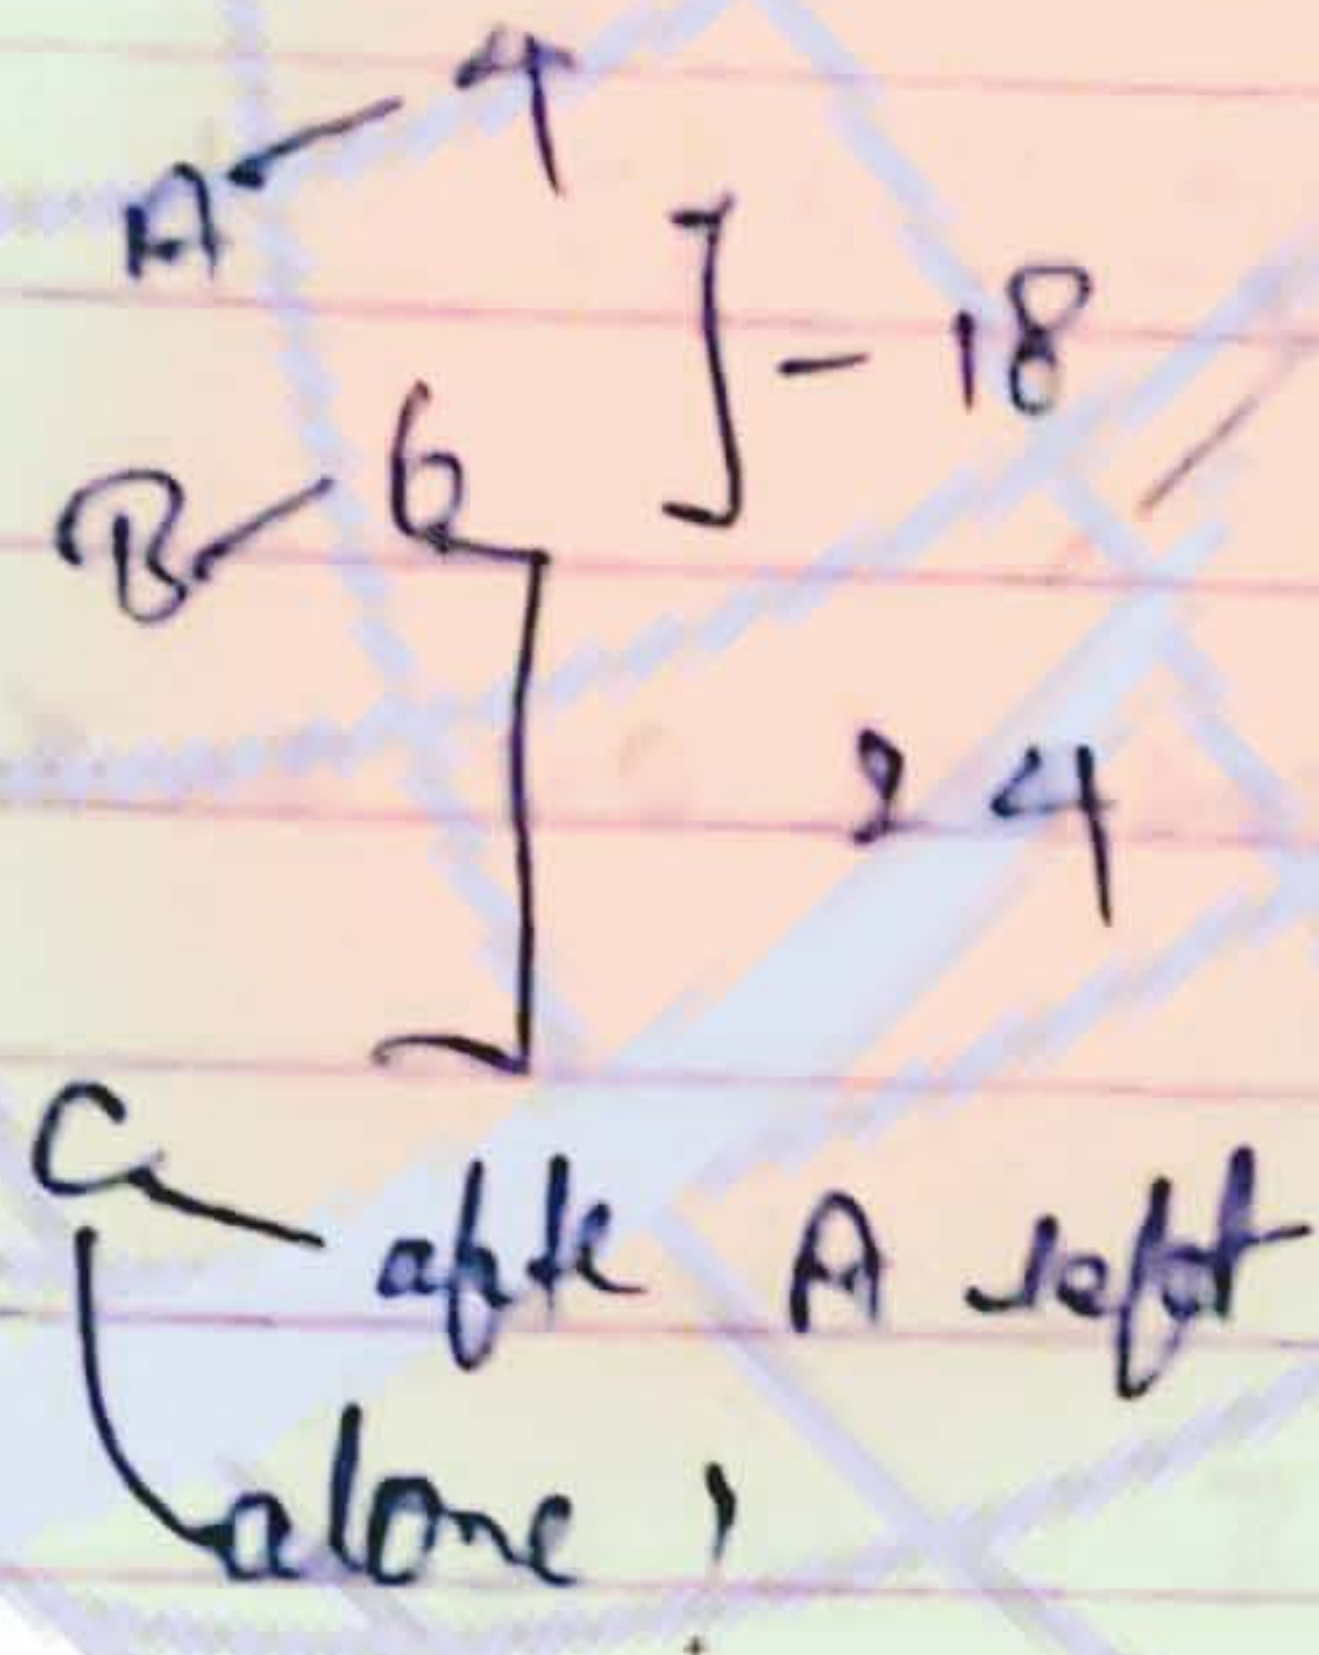 A - 4
] - 18
B - 6
24
C - afte A left
alone